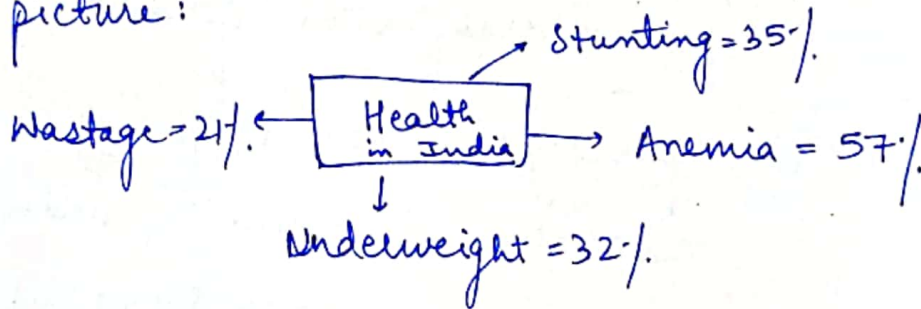 picture:
Stunting = 35%.
Wastage = 21%.
Health
in India
Anemia = 57%.
Underweight = 32%.